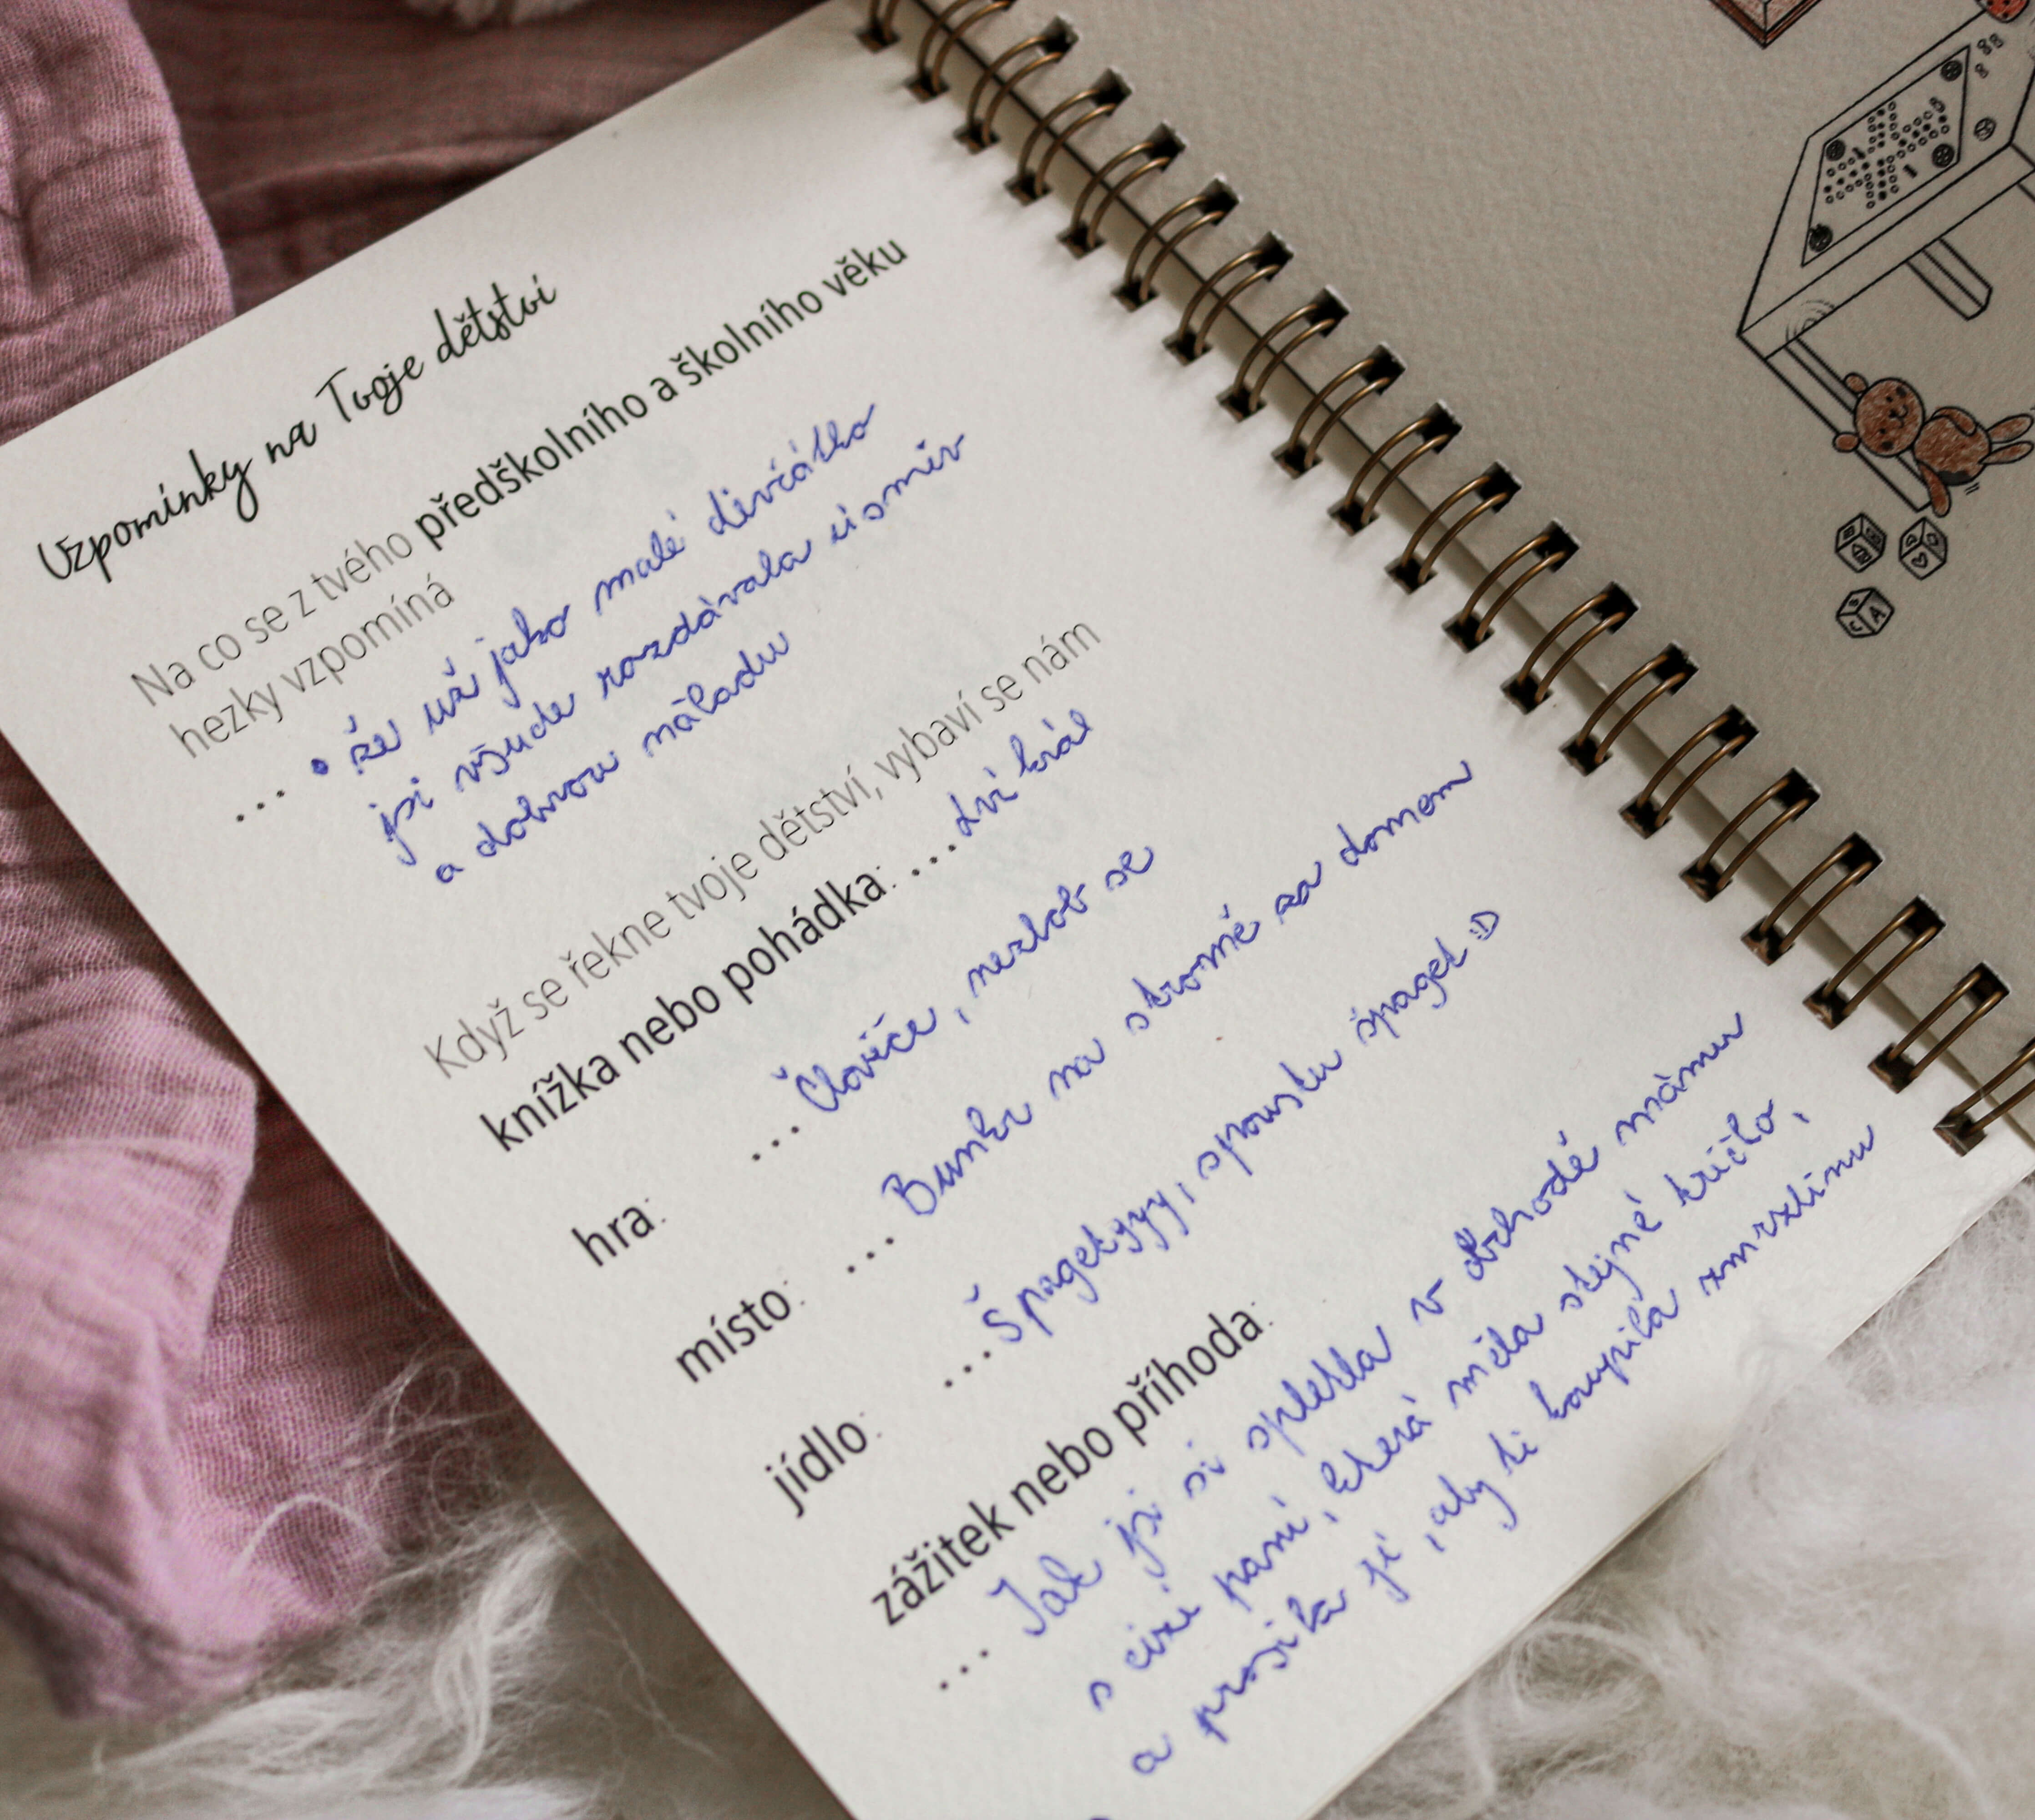 Vzpomínky na Tvoje dětství
Na co se z tvého předškolního a školního věku
hezky vzpomíná
... • že už jako malé děvčátko
jsi všude rozdávala úsměv
a dobrou náladu
Když se řekne tvoje dětství, vybaví se nám
knížka nebo pohádka: ... Lví král
hra: ... Člověče, nezlob se
místo: ... Bunkr na stromě za domem
jídlo: ... Špagetyyy, spoustu špaget :D
zážitek nebo příhoda:
... Jak jsi si spletla v obchodě mámu
s cizí paní, která měla stejné tričko,
a prosila ji, aby ti koupila zmrzlinu